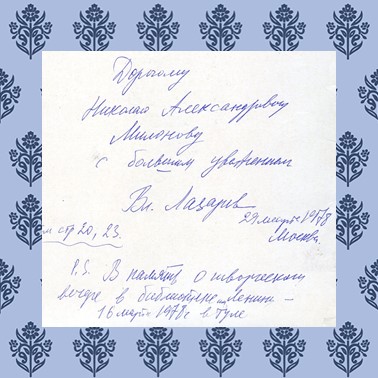 Дорогому
Николаю Александровичу
Милонову
с большим уважением
Вл. Лазарев
29 марта 1978
Москва.
стр 20, 23.
P.S. В память о творческом
вечере в библиотеке им. Ленина –
16 марта 1978 г. в Туле